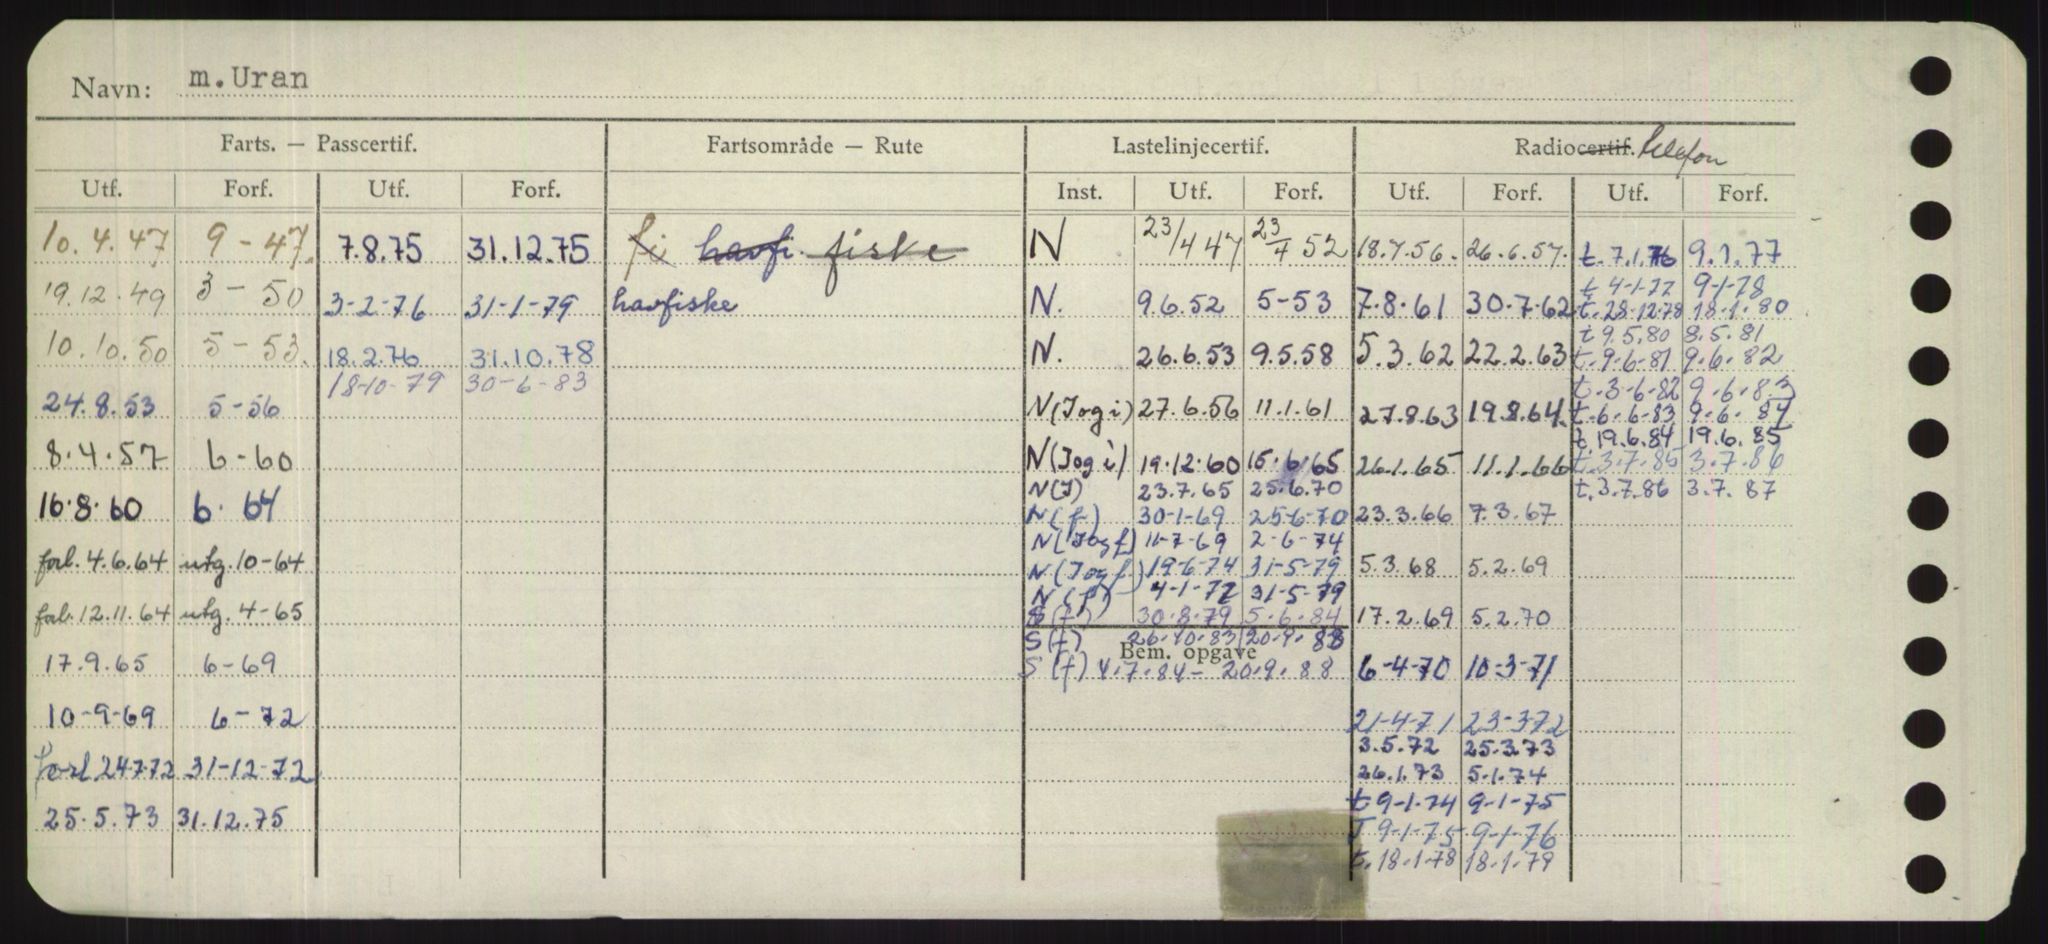 Navn: m.Uran
Farts. — Passcertif. Fartsområde — Rute Lastelinjecertif. Radiocertif. telefon
Utf. Forf. Utf. Forf. Inst. Utf. Forf. Utf. Forf. Utf. Forf.
10.4.47 9-47. 7.8.75 31.12.75 fi havfi. fiske N 23/4 47 23/4 52 18.7.56. 26.6.57. t. 7.1.76 9.1.77
t 4-1-77 9-1-78
19.12.49 3-50 3-2-76 31-1-79 havfiske N. 9.6.52 5-53 7.8.61 30.7.62 t. 28.12.78 18.1.80
t 9.5.80 8.5.81
10.10.50 5-53. 18.2.76 31.10.78 N. 26.6.53 9.5.58 5.3.62 22.2.63 t. 9-6-81 9.6.82
18-10-79 30-6-83 t. 3-6-82 9.6.83
24.8.53 5-56 N (I og i) 27.6.56 11.1.61 27.8.63 19.8.64. t. 6.6-83 9.6.84
t 19.6.84 19.6.85
8.4.57 6-60 N (I og i) 19.12.60 15.6.65 26.1.65 11.1.66 t. 3.7.85 3.7.86
N (I) 23.7.65 25.6.70 t. 3.7.86 3.7.87
16.8.60 6.64 N (f) 30-1-69 25-6-70 23.3.66 7.3.67
N (I og f) 11-7-69 2-6-74
forl. 4.6.64 utg. 10-64 N (I og f) 19-6-74 31-5-79 5.3.68 5.2.69
N (f) 4-1-72 31-5-79
forl. 12.11.64 utg. 4-65 S (f) 30.8.79 5.6.84 17.2.69 5.2.70
S (f) 26.10.83 20.9.88
Bem. opgave
17.9.65 6-69 S (f) 4.7.84 - 20.9.88 6-4-70 10-3-71
10-9-69 6-72 21-4-71 23-3-72
3.5.72 25.3.73
forl 24.7.72 31-12-72 26.1.73 5.1.74
25.5.73 31.12.75 t 9-1-74 9-1-75
T 9-1-75 9-1-76
t. 18.1.78 18.1.79